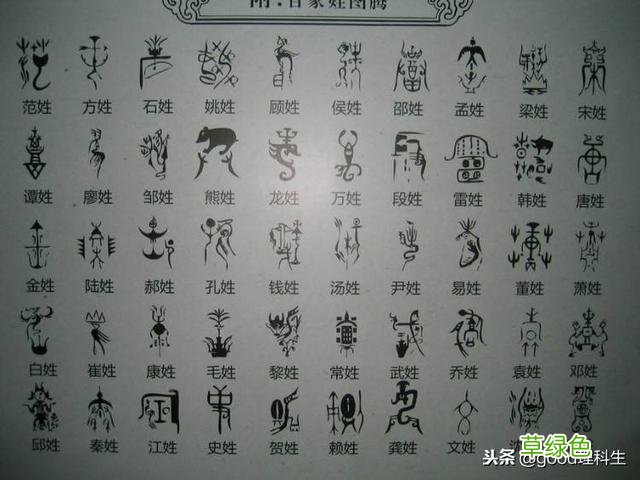 附：百家姓图腾
范姓 方姓 石姓 姚姓 顾姓 侯姓 邵姓 孟姓 梁姓 宋姓
谭姓 廖姓 邹姓 熊姓 龙姓 万姓 段姓 雷姓 韩姓 唐姓
金姓 陆姓 郝姓 孔姓 钱姓 汤姓 尹姓 易姓 董姓 萧姓
白姓 崔姓 康姓 毛姓 黎姓 常姓 武姓 乔姓 袁姓 邓姓
邱姓 秦姓 江姓 史姓 贺姓 赖姓 龚姓 文姓
草绿色
头条 @good理科生